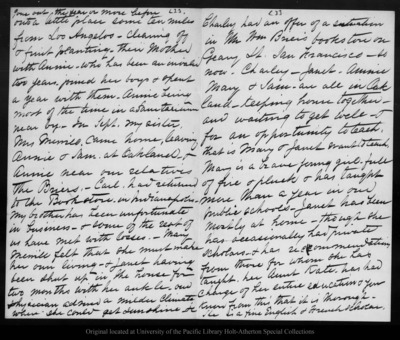 gone out, the year or more before
out a little place some ten miles
from Los Angelos - Clearing of
& fruit planting. then Mother
with Annie - who has been an invalid
two years, joined her boys & spent
a year with them. Annie being
most of the time in a Sanitarium
near by - In Sept. my sister,
Mrs Merrill, came home, leaving
Annie & Sam. at Oakland, &
Annie near our relatives
the Briers. - Carl. had returned
to the Book store, in Indianapolis.
My brother has been unfortunate
in business - & some of the rest of
us have met with losses - Mary
Merrill felt that she must make
her own living - & Janet having
been shut up in the house for
two months with her ankle, our
physician advised a milder climate
where she could get sunshine &c
Charley had an offer of a situation
in Mr Wm Brier's bookstore on
Geary St. San Francisco - so
now - Charley - Janet - Annie
Mary & Sam - are all in Oak
land - keeping house together -
and waiting to get well - &
for an opportunity to teach.
that is Mary & Janet want to teach
Mary is a brave young girl. full
of fire & pluck & has taught
more than a year in our
public schools - Janet has been
mostly at home - though she
has occasionally had private
scholars - & has recommendations
from those for whom she has
taught. her Aunt Kate. has had
charge of her entire education & you
know from this that it is thorough -
she is a fine English & French scholar.
Original located at University of the Pacific Library Holt-Atherton Special Collections